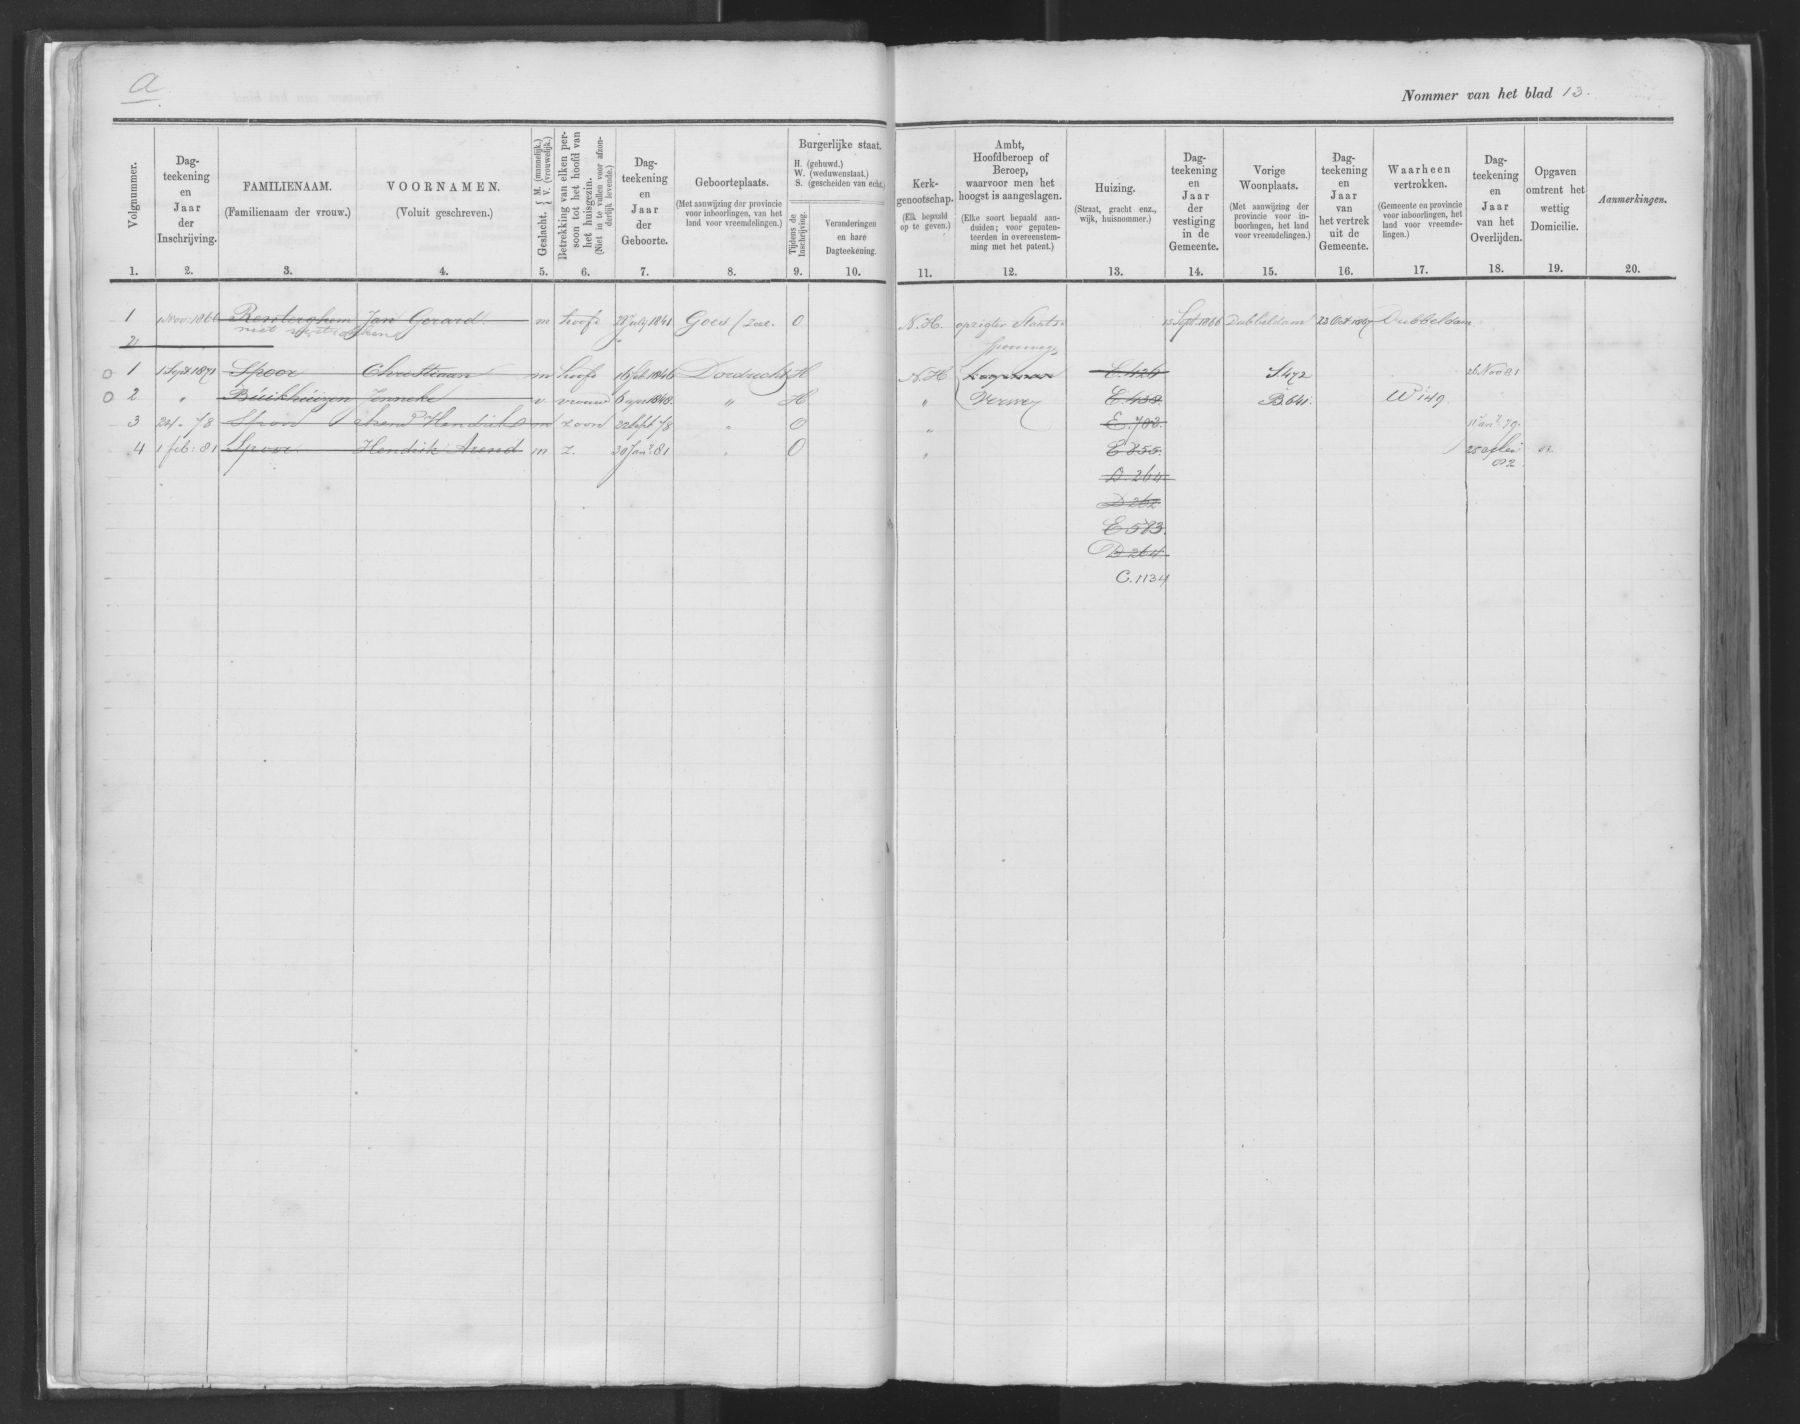 a
Nommer van het blad 13.
Volgnummer.
Dag-
teekening
en
Jaar
der
Inschrijving.
FAMILIENAAM.
(Familienaam der vrouw.)
VOORNAMEN.
(Voluit geschreven.)
Geslacht. { M. (mannelijk.) V. (vrouwelijk.)
Betrekking van elken per-
soon tot het hoofd van
het huisgezin.
(Niet in te vullen voor afzon-
derlijk levende.)
Dag-
teekening
en
Jaar
der
Geboorte.
Geboorteplaats.
(Met aanwijzing der provincie
voor inboorlingen, van het
land voor vreemdelingen.)
Burgerlijke staat.
H. (gehuwd.)
W. (weduwenstaat.)
S. (gescheiden van echt.)
Tijdens de
Inschrijving.
Veranderingen
en hare
Dagteekening.
Kerk-
genootschap.
(Elk bepaald
op te geven.)
Ambt,
Hoofdberoep of
Beroep,
waarvoor men het
hoogst is aangeslagen.
(Elke soort bepaald aan-
duiden; voor gepaten-
teerden in overeenstem-
ming met het patent.)
Huizing.
(Straat, gracht enz.,
wijk, huisnommer.)
Dag-
teekening
en
Jaar
der
vestiging
in de
Gemeente.
Vorige
Woonplaats.
(Met aanwijzing der
provincie voor in-
boorlingen, het land
voor vreemdelingen.)
Dag-
teekening
en
Jaar
van
het vertrek
uit de
Gemeente.
Waarheen
vertrokken.
(Gemeente en provincie
voor inboorlingen, het
land voor vreemde-
lingen.)
Dag-
teekening
en
Jaar
van het
Overlijden.
Opgaven
omtrent het
wettig
Domicilie.
Aanmerkingen.
1. 2. 3. 4. 5. 6. 7. 8. 9. 10. 11. 12. 13. 14. 15. 16. 17. 18. 19. 20.
1 1 Nov: 1866 Jan Gerard m hoofd 28 July 1841 Goes / Zeel. O N.H. opzigter Staats 15 Sept. 1866 Dubbeldam 23 Oct 1867 Dubbeldam
niet vertrokken
2 spoorweg
1 1 Sept 1871 Spoor Christiaan m hoofd 16 feb. 1846 Dordrecht H N.H. koopman E.426 S.472 26 Nov 81
2 " Buikhuizen Janneke v vrouw 6 apr 1848. " H " Verwer E.438 B.641. W 149.
3 24. " 78 Spoor Arend Hendrik m zoon 22 sept 78 " O " E.703. 11 Jan: 79.
4 1 feb: 81 Spoor Hendrik Arend m z. 30 Jan: 81 " O " E 855.
D. 264.
D 262
E 583.
D 264
C. 1134